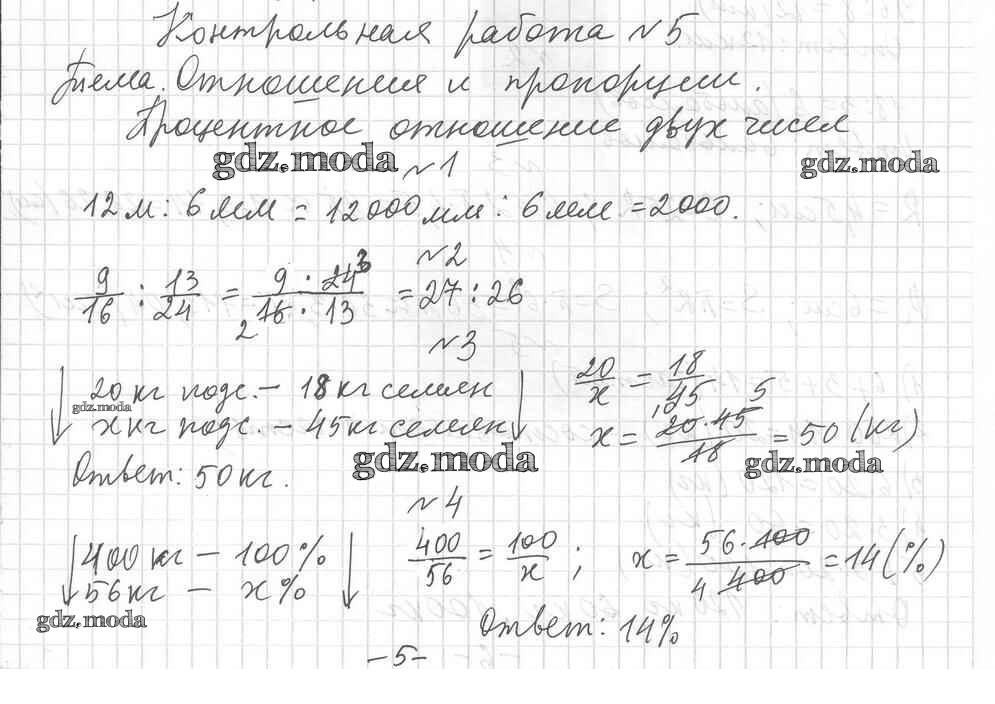 Контрольная работа №5
Тема. Отношения и пропорции.
Процентное отношение двух чисел
gdz.moda
gdz.moda
№1
12м : 6мм = 12000мм : 6мм = 2000.
№2
9/16 : 13/24 = 9 · 24 3 / 2 16 · 13 = 27 : 26
№3
↓ 20 кг подс. – 18 кг семян ↓ 20/x = 18/45
gdz.moda
x кг подс. – 45 кг семян x = 20 · 45 5 / 18 = 50 (кг)
gdz.moda
gdz.moda
Ответ: 50 кг.
№4
↓ 400 кг – 100% ↓ 400/56 = 100/x ; x = 56 · 100 / 4 400 = 14 (%)
56 кг – x%
gdz.moda
Ответ: 14%
–5–